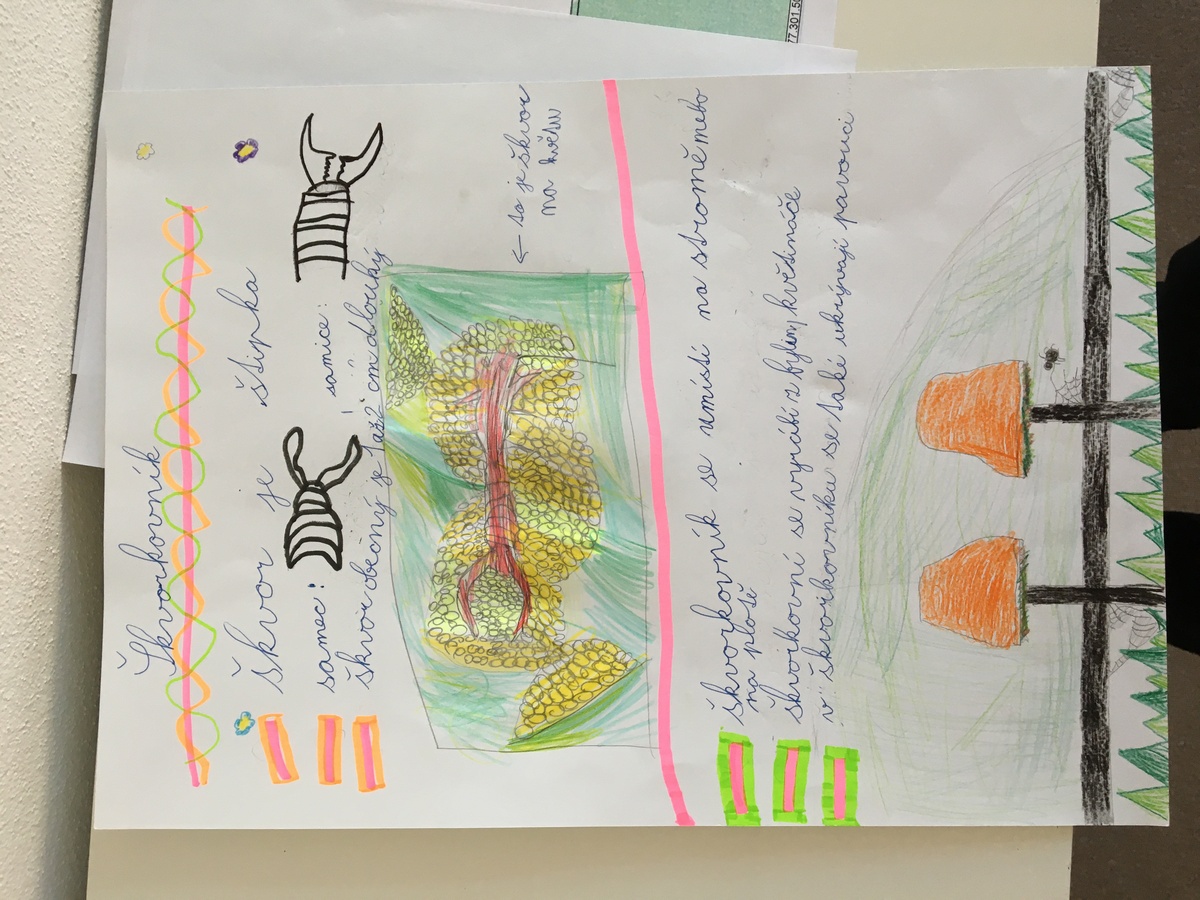 Škvorkovník
škvor je štipka
samec: samice:
škvor obecný je 1 až 1 cm dlouhý
← to je škvor
na květu
škvorkovník se umístí na stromě nebo
na plotě
škvorkovní se vyrábí z byliny květináče
v škvorkovníku se také ukrývají pavouci
77.301.50